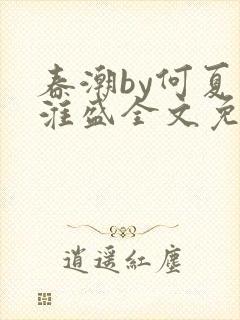 春潮by何夏
淮盛全文免
逍遥紅塵